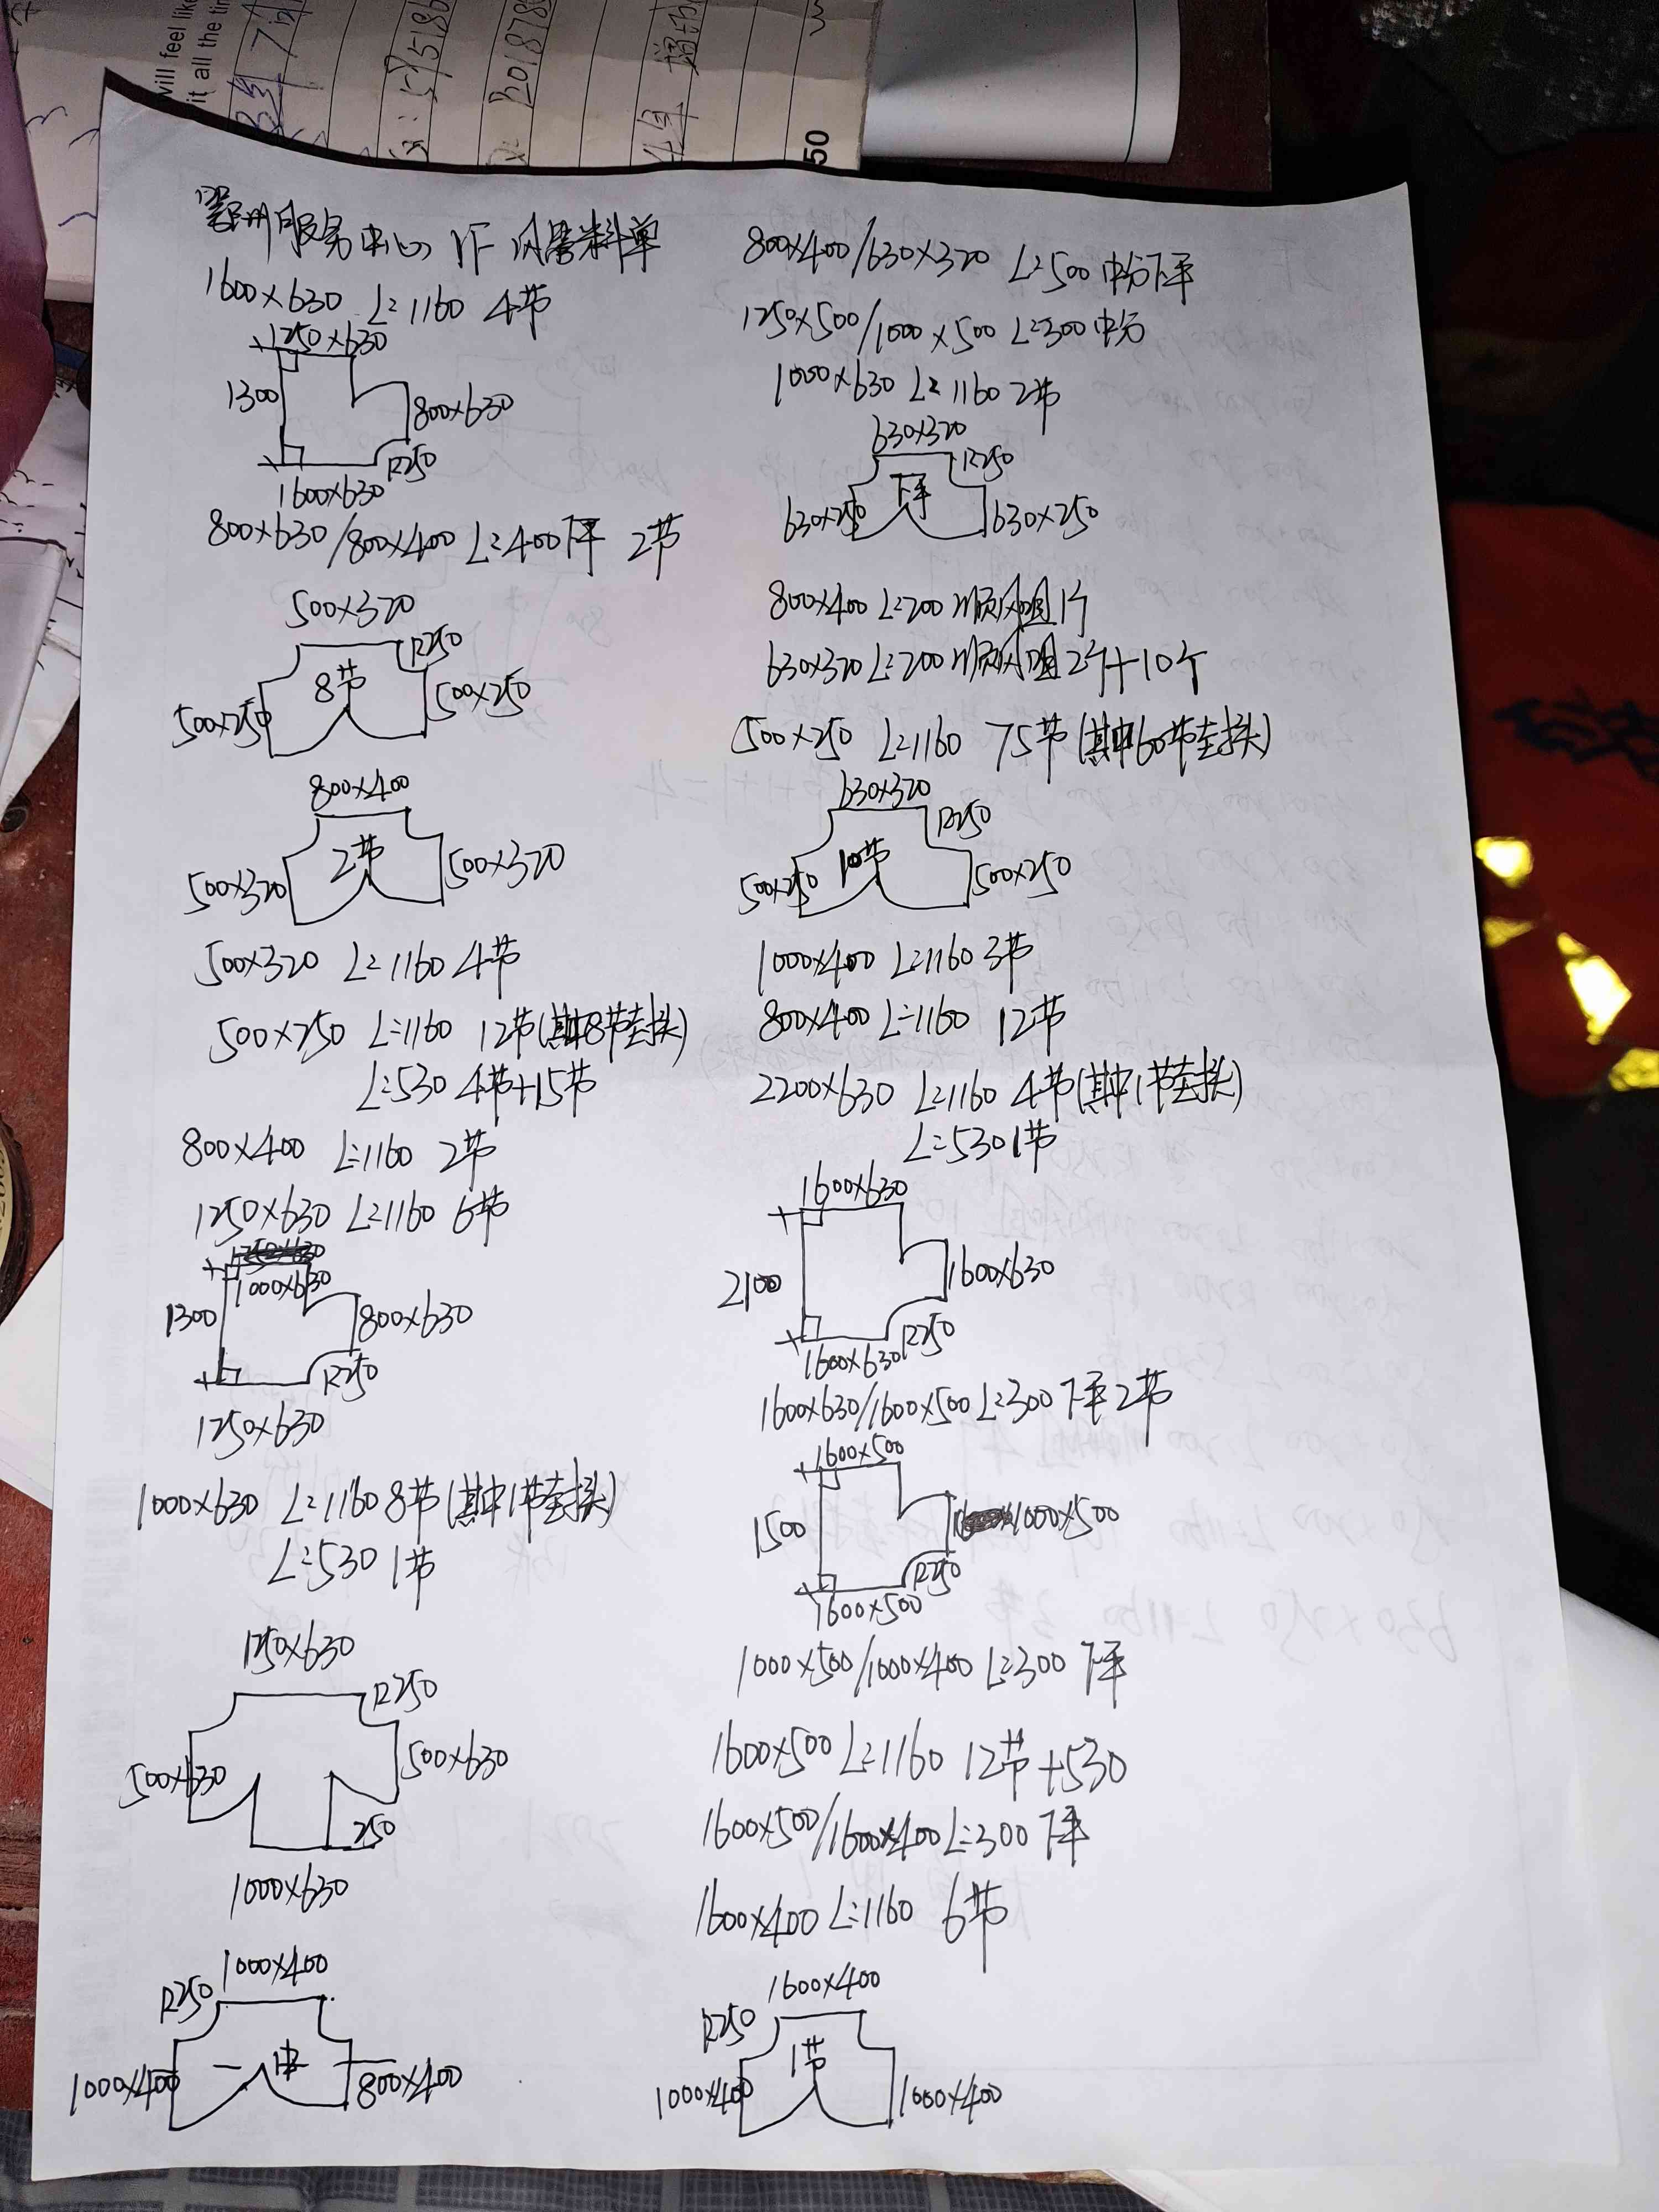 服务中心 1F 风管料单
1600×630 L=1160 4节
1250×630
1300
800×630
R250
1600×630
800×630/800×400 L=400下平 2节
500×320
R250
8节
500×250
500×250
800×400
2节
500×320
500×320
500×320 L=1160 4节
500×250 L=1160 12节(其中8节封头)
L=530 4节+15节
800×400 L=1160 2节
1250×630 L=1160 6节
1000×630
1300
800×630
R250
1250×630
1000×630 L=1160 8节(其中1节封头)
L=530 1节
1250×630
R250
500×630
500×630
250
1000×630
1000×400
R250
中
1000×400
800×400
800×400/630×320 L=500 中分下平
1250×500/1000×500 L=300 中分
1000×630 L=1160 2节
630×320
R250
下平
630×250
630×250
800×400 L=200 顺风阻1个
630×320 L=200 顺风阻2个+10个
500×250 L=1160 75节(其中60节封头)
630×320
R250
10节
500×250
500×250
1000×400 L=1160 3节
800×400 L=1160 12节
2200×630 L=1160 4节(其中1节封头)
L=530 1节
1600×630
2100
1600×630
R250
1600×630
1600×630/1600×500 L=300 下平2节
1600×500
1500
1000×500
R250
1600×500
1000×500/1000×400 L=300 下平
1600×500 L=1160 12节+530
1600×500/1600×400 L=300 下平
1600×400 L=1160 6节
1600×400
R250
1节
1000×400
1000×400
will feel like
it all the tim
50